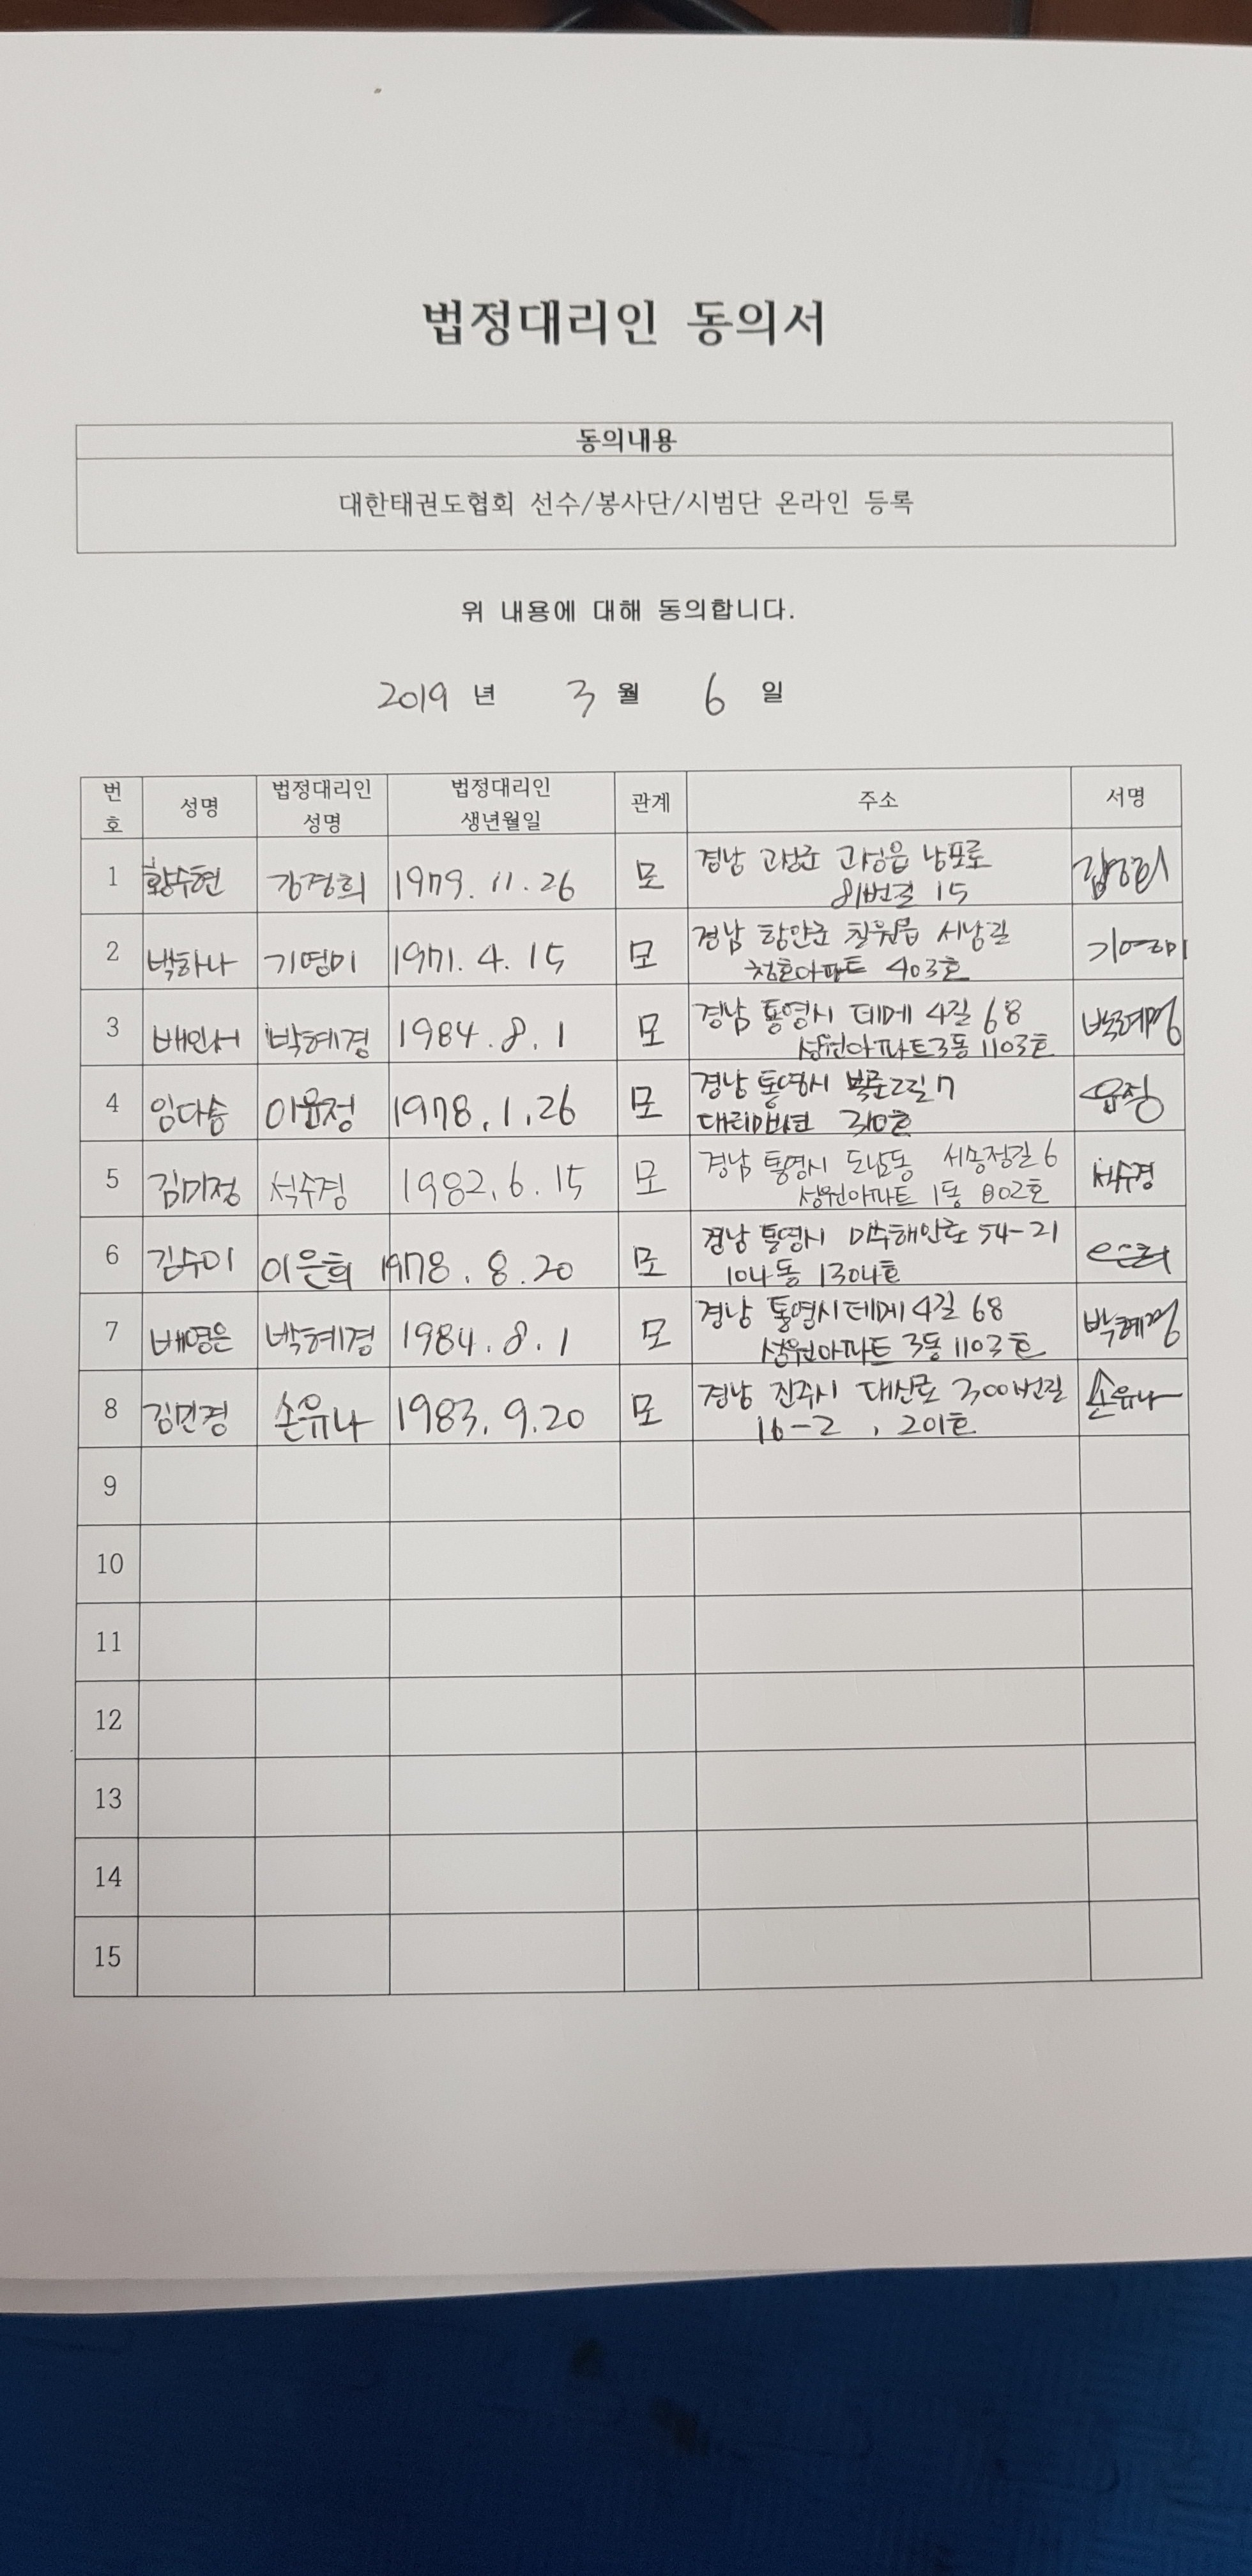 법정대리인 동의서
동의내용
대한태권도협회 선수/봉사단/시범단 온라인 등록
위 내용에 대해 동의합니다.
2019 년 3 월 6 일
번호 성명 법정대리인 성명 법정대리인 생년월일 관계 주소 서명
1 황수현 강경희 1979. 11. 26 모 경남 고성군 고성읍 남포로
81번길 15
2 박하나 기영미 1971. 4. 15 모 경남 함안군 칠원읍 서남길 기영미
청호아파트 403호
3 배인서 박혜경 1984. 8. 1 모 경남 통영시 데메 4길 68 박혜경
성원아파트 3동 1103호
4 임다솜 이윤정 1978. 1. 26 모 경남 통영시 북문2길 7 윤정
310호
5 김미정 석수경 1982. 6. 15 모 경남 통영시 도남동 서송정길 6 석수경
성원아파트 1동 802호
6 김수미 이은희 1978. 8. 20 모 경남 통영시 미수해안로 54-21 은희
104동 1304호
7 배영은 박혜경 1984. 8. 1 모 경남 통영시 데메 4길 68 박혜경
성원아파트 3동 1103호
8 김민경 손유나 1983. 9. 20 모 경남 진주시 대신로 300번길 손유나
16-2 , 201호
9
10
11
12
13
14
15